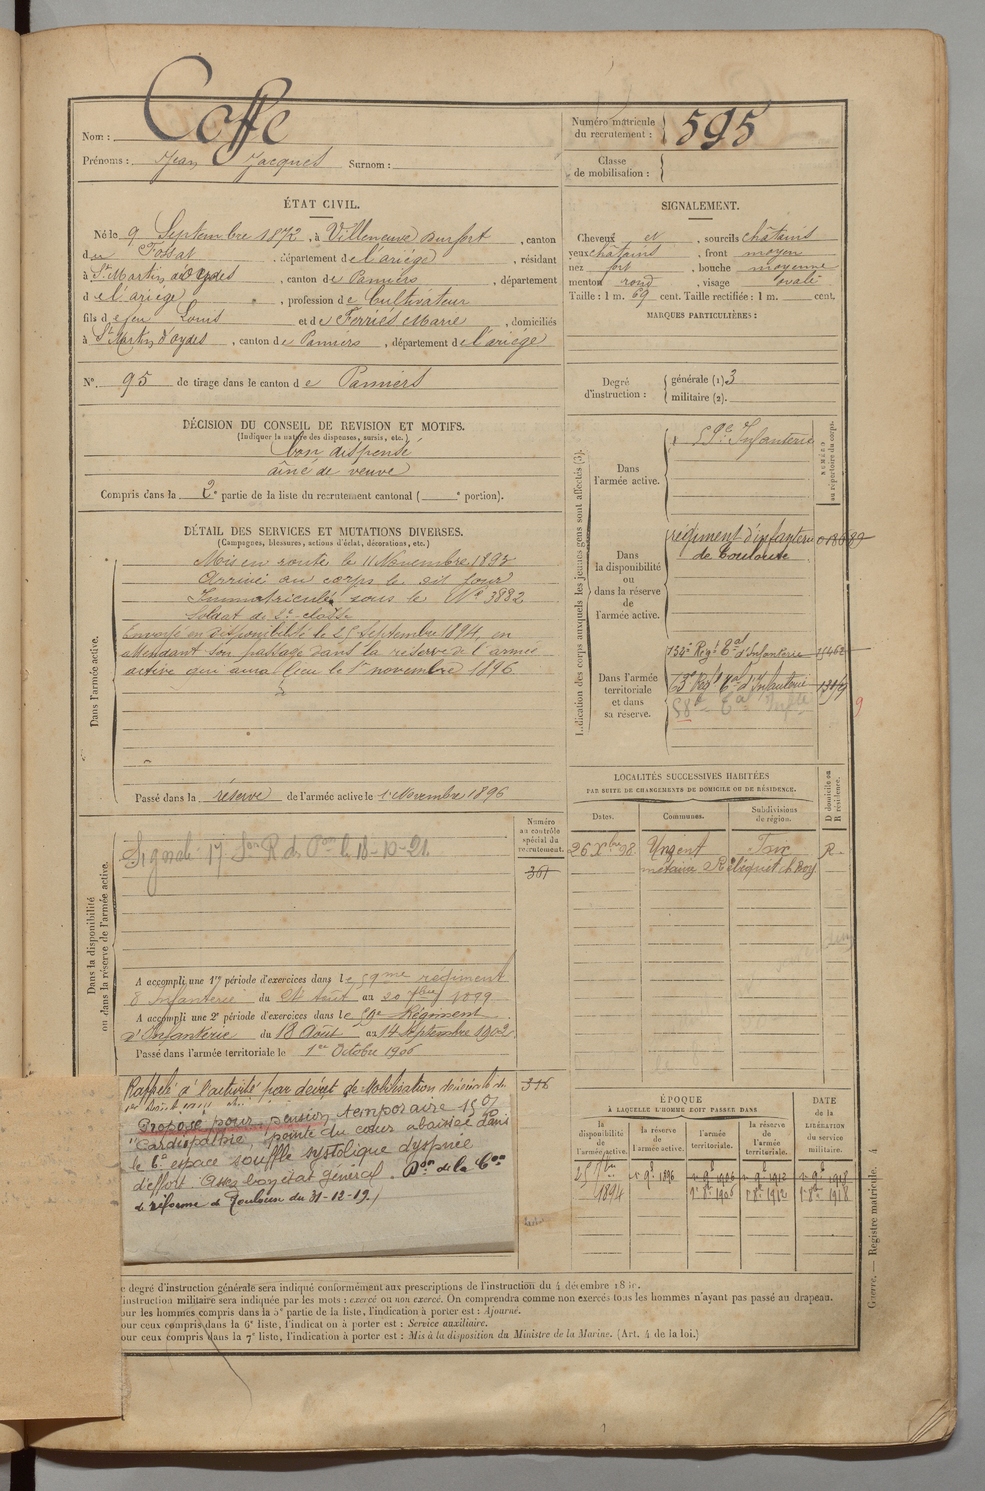 Nom : Caffe
Prénoms : Jean Jacques Surnom :
Numéro matricule du recrutement : 595
Classe de mobilisation :
ÉTAT CIVIL.
Né le 9 Septembre 1872, à Villeneuve Durfort, canton
du Fossat, département de l'ariège, résidant
à St Martin d'oydes, canton de Pamiers, département
de l'ariège, profession de Cultivateur
fils de feu Louis et de Ferriès Marie, domiciliés
à St Martin d'oydes, canton de Pamiers, département de l'ariège
N° 95 de tirage dans le canton de Pamiers
SIGNALEMENT.
Cheveux et, sourcils châtains
yeux châtains, front moyen
nez fort, bouche moyenne
menton rond, visage ovale
Taille : 1 m. 69 cent. Taille rectifiée : 1 m. cent.
MARQUES PARTICULIÈRES :
Degré d'instruction : générale (1) 3
militaire (2).
DÉCISION DU CONSEIL DE REVISION ET MOTIFS.
(Indiquer la nature des dispenses, sursis, etc.)
bon dispensé
aîné de veuve
Compris dans la 2e partie de la liste du recrutement cantonal ( e portion).
DÉTAIL DES SERVICES ET MUTATIONS DIVERSES.
(Campagnes, blessures, actions d'éclat, décorations, etc.)
Dans l'armée active.
Mis en route le 11 Novembre 1893
Arrivé au corps le dit jour
Immatriculé sous le N° 3882
Soldat de 2e classe
Envoyé en disponibilité le 25 septembre 1894, en
attendant son passage dans la réserve de l'armée
active qui aura lieu le 1er novembre 1896
Passé dans la réserve de l'armée active le 1 Novembre 1896
Indication des corps auxquels les jeunes gens sont affectés (3).
NUMÉRO au répertoire du corps.
Dans l'armée active.
59e Infanterie
Dans la disponibilité ou dans la réserve de l'armée active.
régiment d'infanterie
de Toulouse
Dans l'armée territoriale et dans sa réserve.
132e Régt Tal d'Infanterie
Régt Tal d'Infanterie
LOCALITÉS SUCCESSIVES HABITÉES
PAR SUITE DE CHANGEMENTS DE DOMICILE OU DE RÉSIDENCE.
Dates. Communes. Subdivisions de région. D domicile ou R résidence.
26 Xbre 98 Urgent Foix R.
Dans la disponibilité ou dans la réserve de l'armée active.
Numéro au contrôle spécial du recrutement.
361
A accompli une 1re période d'exercices dans le 59me regiment
d'Infanterie du 24 Août au 20 7bre 1899
A accompli une 2e période d'exercices dans le 59e Régiment
d'Infanterie du 18 Août au 14 Septembre 1902
Passé dans l'armée territoriale le 1er Octobre 1906
Rappelé à l'activité par décret de Mobilisation générale du
316
Proposé pour pension temporaire
"Cardiopathie, pointe du cœur abaissée dans
le 6e espace souffle systolique dyspnée
d'effort. Assez bon état général. Don de la Con
de réforme de Toulouse du 31-12-19.
ÉPOQUE
À LAQUELLE L'HOMME DOIT PASSER DANS
la disponibilité de l'armée active. la réserve de l'armée active. l'armée territoriale. la réserve de l'armée territoriale.
DATE de la LIBÉRATION du service militaire.
25 7bre 1894
1er 9bre 1896
1er 8bre 1906
1er 8bre 1912
1er 8bre 1918
Guerre. — Registre matricule. 4.
e degré d'instruction générale sera indiqué conformément aux prescriptions de l'instruction du 4 décembre
instruction militaire sera indiquée par les mots : exercé ou non exercé. On comprendra comme non exercés tous les hommes n'ayant pas passé au drapeau.
our les hommes compris dans la 5e partie de la liste, l'indication à porter est : Ajourné.
our ceux compris dans la 6e liste, l'indication à porter est : Service auxiliaire.
our ceux compris dans la 7e liste, l'indication à porter est : Mis à la disposition du Ministre de la Marine. (Art. 4 de la loi.)